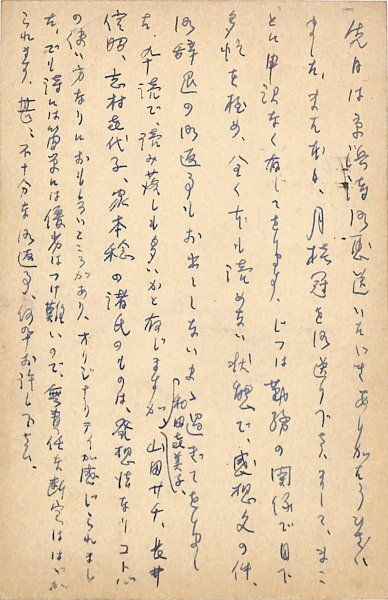 先日は京浜詩派御恵送いただきありがたうござい
ました。またたび、月桂冠を御送り下さいまして、まこ
とに申訳なく存じてをります。じつは勤務の関係で目下
多忙を極め、全く本も読めない状態で、感想文の件、
御辞退の御返事もお出ししないまま過ぎてをりまし
た。九十読で、読み落しも多いかと存じますが、和田喜美子、山田サチ、長井
信昭、志村喜代子、家本稔の諸氏のものは、発想法なりコトバ
の使い方なりにおもしろいところがあり、オリジナリティが感じられまし
た。でも詩には簡単には優劣はつけ難いので、無責任な断定ははばか
られます。甚だ不十分な御返事、何卒お許し下さい。